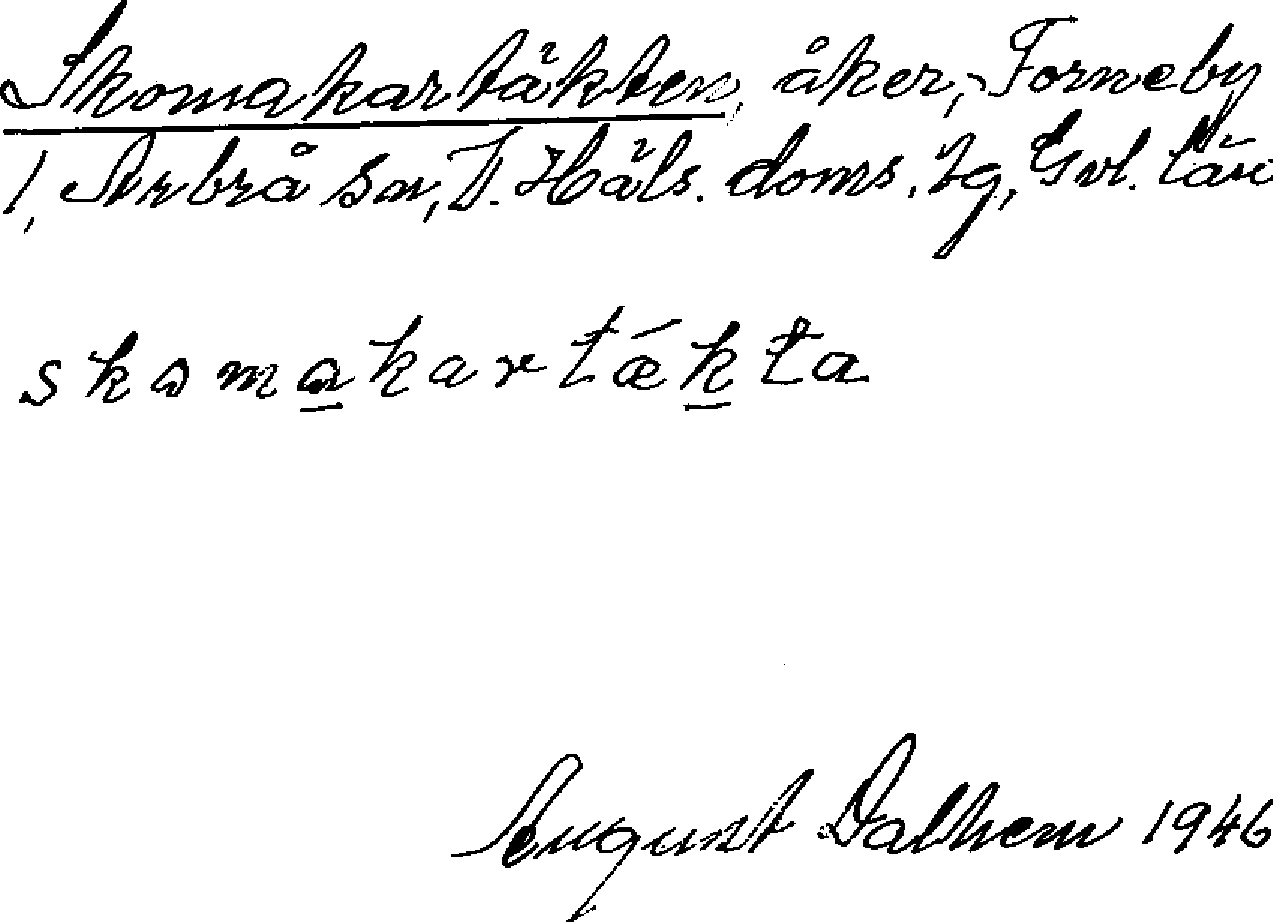 Skomakartäkten, åker, Forneby
1, Arbrå sn, V. Häls. doms. lg, Gvl. län
skomakartǽkta
August Dalhem 1946